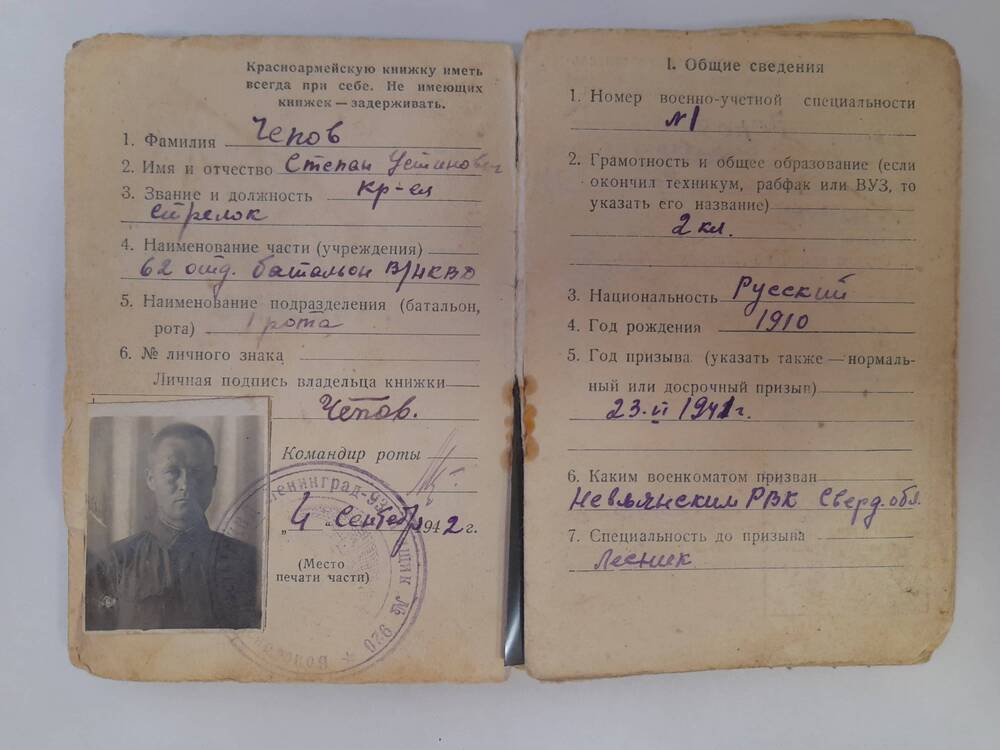 Красноармейскую книжку иметь
всегда при себе. Не имеющих
книжек — задерживать.
1. Фамилия Чепов
2. Имя и отчество Степан Устинович
3. Звание и должность кр-ец
стрелок
4. Наименование части (учреждения)
62 отд. батальон В/НКВД
5. Наименование подразделения (батальон,
рота) 1 рота
6. № личного знака
Личная подпись владельца книжки
Чепов.
Командир роты
„4“ Сентябр 1942 г.
(Место
печати части)
Ленинград-
ящик № 920 *
I. Общие сведения
1. Номер военно-учетной специальности
№1
2. Грамотность и общее образование (если
окончил техникум, рабфак или ВУЗ, то
указать его название)
2 кл.
3. Национальность Русский
4. Год рождения 1910
5. Год призыва (указать также — нормаль-
ный или досрочный призыв)
23.VI 1941 г.
6. Каким военкоматом призван
Невьянским РВК Сверд. обл.
7. Специальность до призыва
Лесник